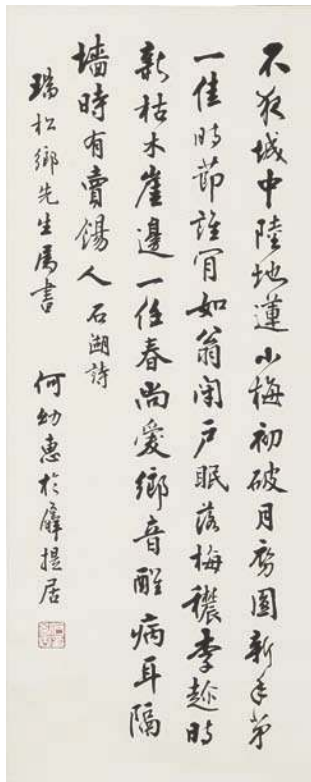 不夜城中陸地蓮小梅初破月初圓新年第
一佳時節誰肯如翁閉戶眠落梅穠李趂時
新枯木崖邊一任春尚愛鄉音醒病耳隔
墻時有賣餳人 石湖詩
瑞松鄉先生属書 何幼惠於居